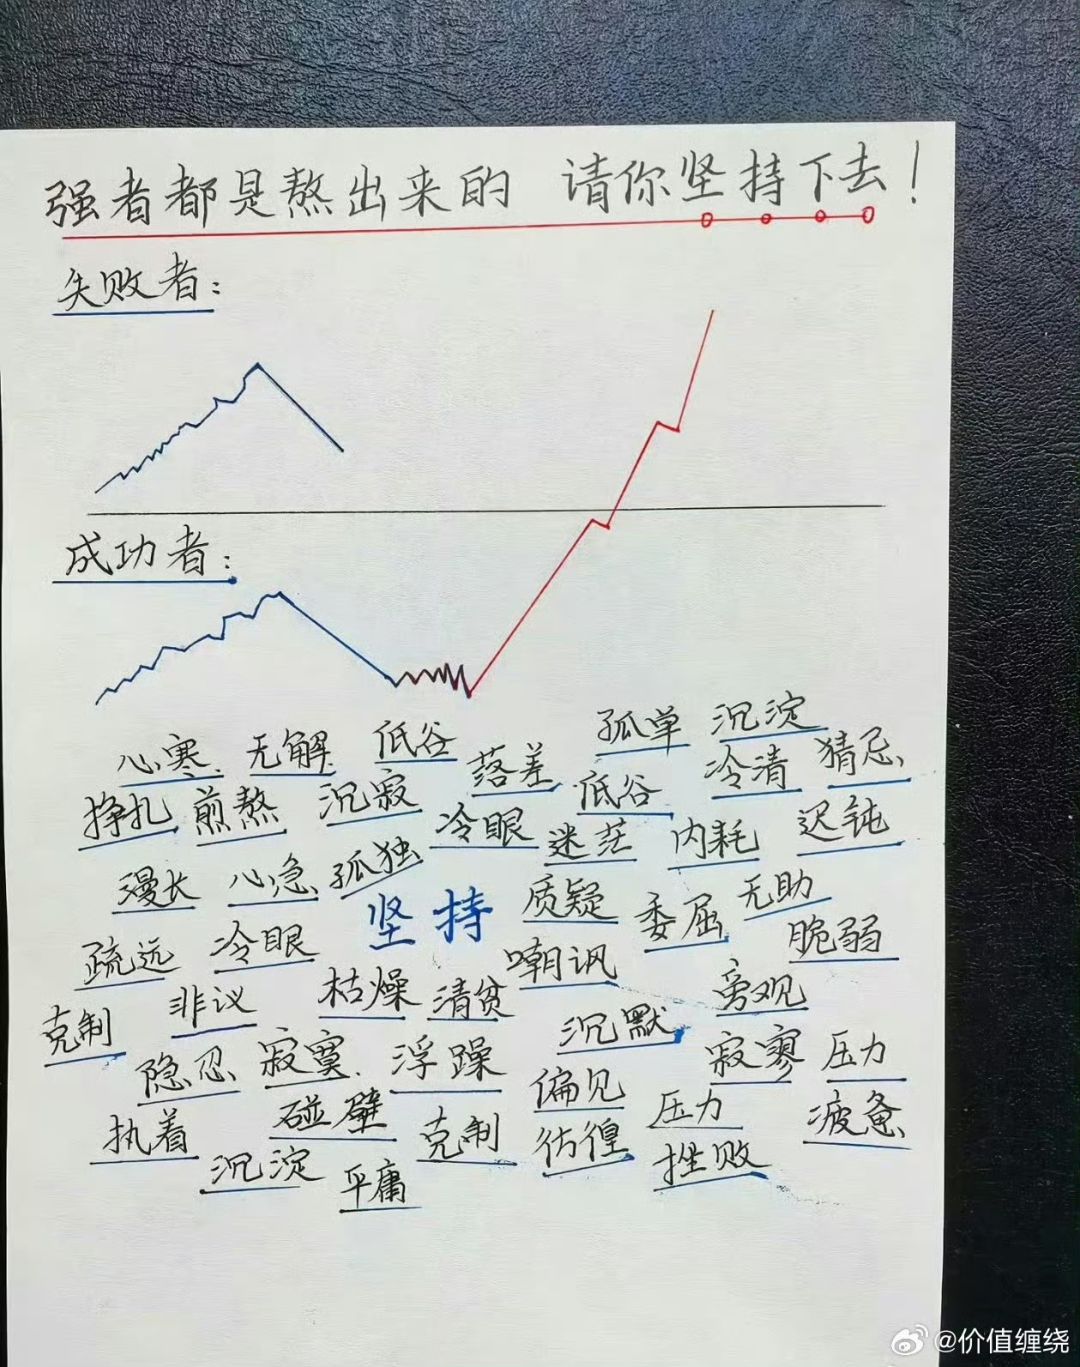 强者都是熬出来的 请你坚持下去！
失败者：
成功者：
心寒 无解 低谷 落差 孤单 沉淀
挣扎 煎熬 沉寂 冷眼 低谷 冷清 猜忌
漫长 心急 孤独 迷茫 内耗 迟钝
坚持 质疑 委屈 无助
疏远 冷眼 嘲讽 脆弱
克制 非议 枯燥 清贫 沉默 旁观
隐忍 寂寞 浮躁 偏见 寂寥 压力
执着 碰壁 克制 彷徨 压力 疲惫
沉淀 平庸 挫败
@价值缠绕